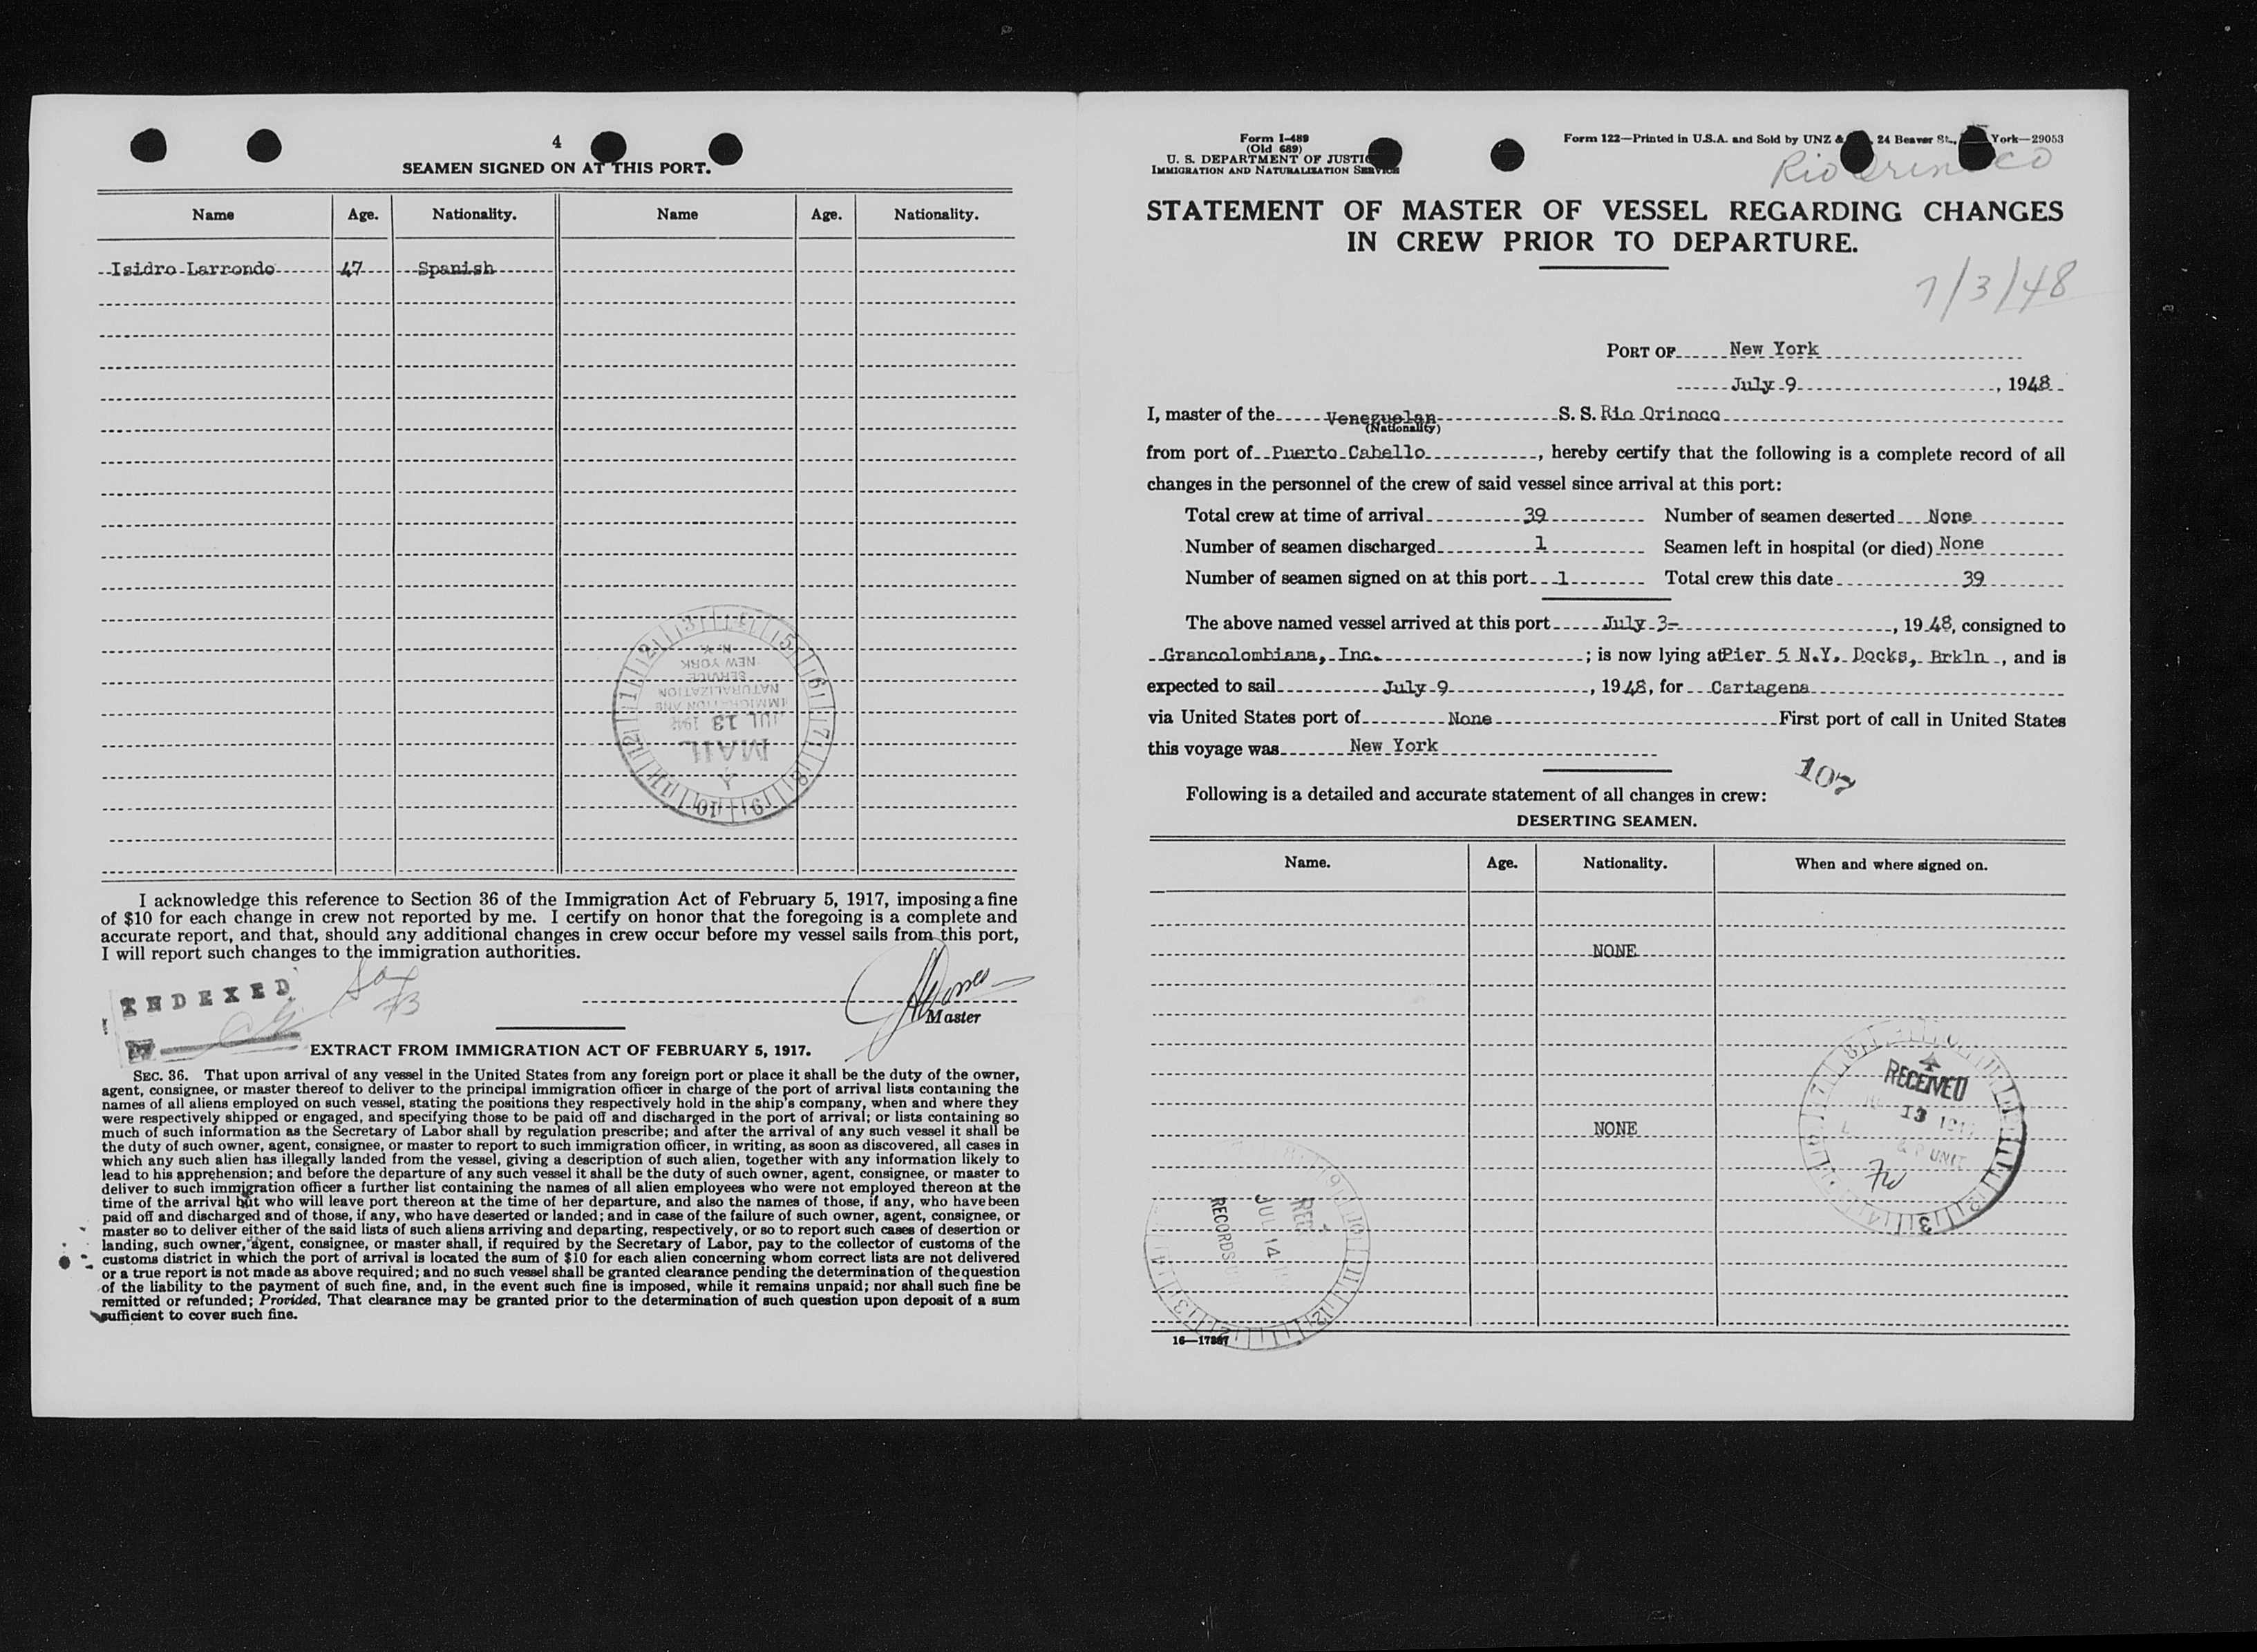 4
SEAMEN SIGNED ON AT THIS PORT.
Name Age. Nationality. Name Age. Nationality.
Isidro Larrondo 47 Spanish
MAIL
JUL 13 1948
IMMIGRATION AND
NATURALIZATION
SERVICE
NEW YORK
N.Y.
I acknowledge this reference to Section 36 of the Immigration Act of February 5, 1917, imposing a fine
of $10 for each change in crew not reported by me. I certify on honor that the foregoing is a complete and
accurate report, and that, should any additional changes in crew occur before my vessel sails from this port,
I will report such changes to the immigration authorities.
INDEXED
Master
EXTRACT FROM IMMIGRATION ACT OF FEBRUARY 5, 1917.
SEC. 36. That upon arrival of any vessel in the United States from any foreign port or place it shall be the duty of the owner,
agent, consignee, or master thereof to deliver to the principal immigration officer in charge of the port of arrival lists containing the
names of all aliens employed on such vessel, stating the positions they respectively hold in the ship's company, when and where they
were respectively shipped or engaged, and specifying those to be paid off and discharged in the port of arrival; or lists containing so
much of such information as the Secretary of Labor shall by regulation prescribe; and after the arrival of any such vessel it shall be
the duty of such owner, agent, consignee, or master to report to such immigration officer, in writing, as soon as discovered, all cases in
which any such alien has illegally landed from the vessel, giving a description of such alien, together with any information likely to
lead to his apprehension; and before the departure of any such vessel it shall be the duty of such owner, agent, consignee, or master to
deliver to such immigration officer a further list containing the names of all alien employees who were not employed thereon at the
time of the arrival but who will leave port thereon at the time of her departure, and also the names of those, if any, who have been
paid off and discharged and of those, if any, who have deserted or landed; and in case of the failure of such owner, agent, consignee, or
master so to deliver either of the said lists of such aliens arriving and departing, respectively, or so to report such cases of desertion or
landing, such owner, agent, consignee, or master shall, if required by the Secretary of Labor, pay to the collector of customs of the
customs district in which the port of arrival is located the sum of $10 for each alien concerning whom correct lists are not delivered
or a true report is not made as above required; and no such vessel shall be granted clearance pending the determination of the question
of the liability to the payment of such fine, and, in the event such fine is imposed, while it remains unpaid; nor shall such fine be
remitted or refunded; Provided, That clearance may be granted prior to the determination of such question upon deposit of a sum
sufficient to cover such fine.
Form I-489
(Old 689)
U. S. DEPARTMENT OF JUSTICE
IMMIGRATION AND NATURALIZATION SERVICE
Form 122—Printed in U.S.A. and Sold by UNZ & 24 Beaver St., York—29053
Rio Orinoco
STATEMENT OF MASTER OF VESSEL REGARDING CHANGES
IN CREW PRIOR TO DEPARTURE.
7/3/48
PORT OF New York
July 9, 1948
I, master of the Veneguelan S. S. Rio Orinoco
(Nationality)
from port of Puerto Cabello, hereby certify that the following is a complete record of all
changes in the personnel of the crew of said vessel since arrival at this port:
Total crew at time of arrival 39 Number of seamen deserted None
Number of seamen discharged 1 Seamen left in hospital (or died) None
Number of seamen signed on at this port 1 Total crew this date 39
The above named vessel arrived at this port July 3-, 1948, consigned to
Grancolombiana, Inc.; is now lying at Pier 5 N.Y. Docks, Brkln, and is
expected to sail July 9, 1948, for Cartagena
via United States port of None First port of call in United States
this voyage was New York
107
Following is a detailed and accurate statement of all changes in crew:
DESERTING SEAMEN.
Name. Age. Nationality. When and where signed on.
NONE
RECEIVED
13
UNIT
NONE
REC
JUL 14
RECORDS
16—17887